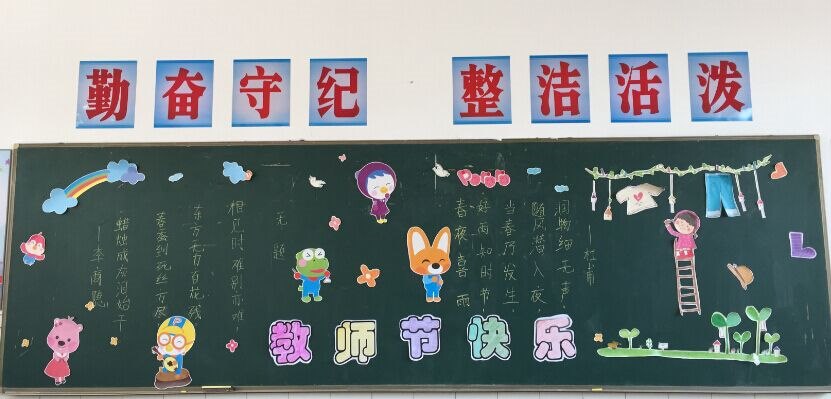 勤奋守纪 整洁活泼
Pororo
无题
相见时难别亦难，
东风无力百花残
春蚕到死丝方尽
蜡炬成灰泪始干
—李商隐
春夜喜雨
好雨知时节，
当春乃发生，
随风潜入夜，
润物细无声。
—杜甫
教师节快乐